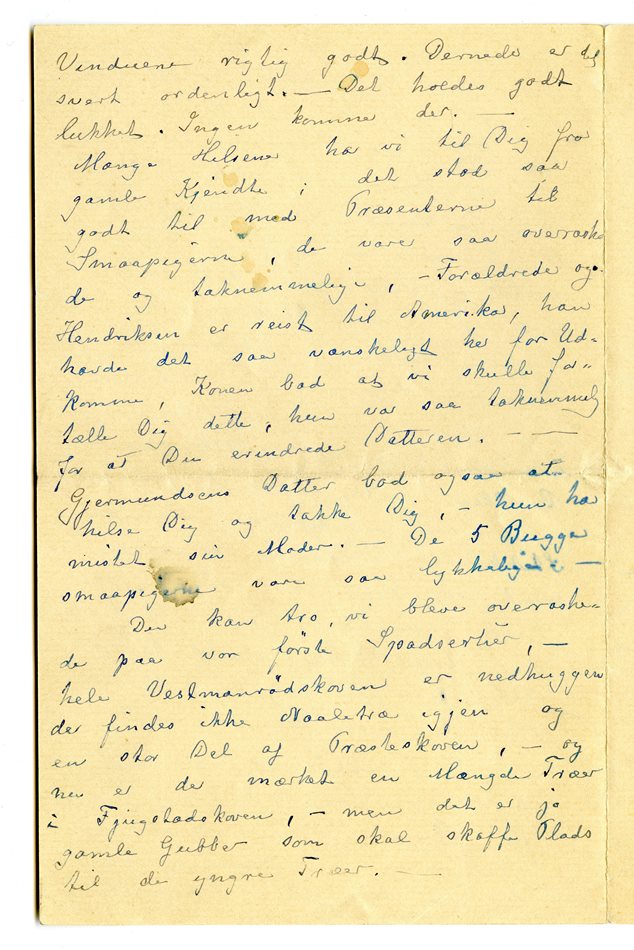 Vinduene rigtig godt. Dernede er
svert ordenligt. — Det holdes godt
lukket. Ingen komme der. —
Mange Hilsene har vi til Dig fra
gamle Kjendte i det stod saa
godt til med Præsenterne til
Smaapigerne, de vare saa overraske
de og taknemmelige, — Forældrede og
Hendriksen er reist til Amerika, han
havde det saa vanskeligt her for Ud-
komme, Konen bad at vi skulle for-
tælle Dig dette, hun var saa taknemmelig
for at Du erindrede Datteren. — —
Gjermundsens Datter bad ogsaa at
hilse Dig og takke Dig, — hun har
mistet sin Moder. — De 5 Bugge
smaapigerne vare saa lykkelige —
Du kan tro, vi bleve overraske-
de paa vor første Spadsertur, —
hele Vestmanrødskoven er nedhuggen
der findes ikke Naaletræ igjen og
en stor Del af Præsteskoven, — og
nu er der mærket en Mængde Træer
i Fjugstadskoven, — men det er jo
gamle Gubber som skal skaffe Plads
til de yngre Træer. —